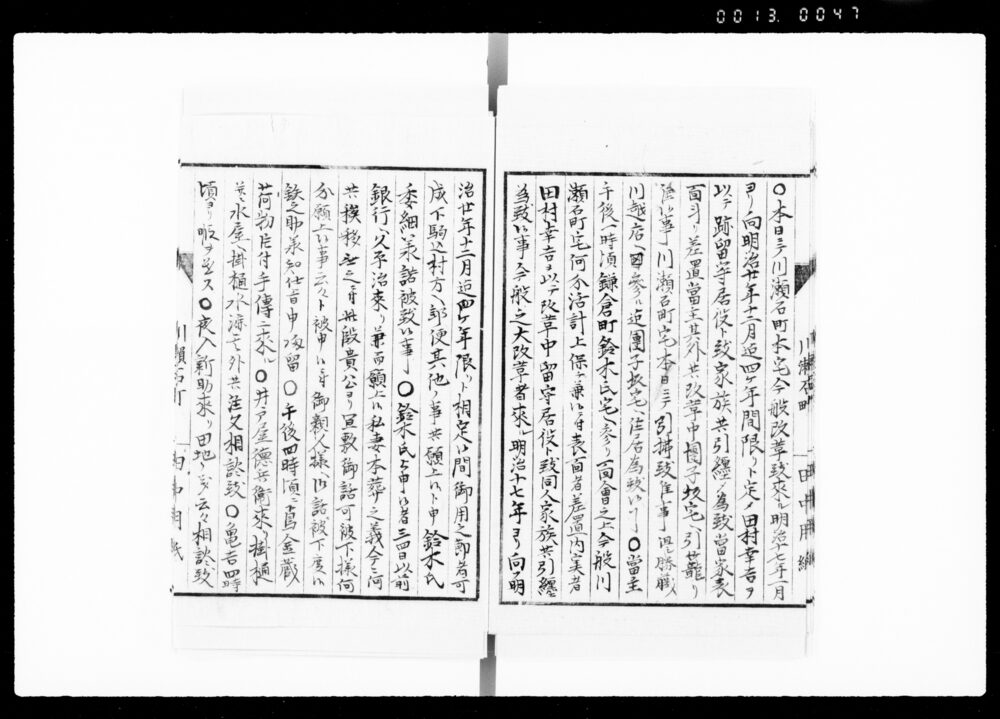 0013. 0047
〇本日ニテ川瀬石町本宅今般改革致来ル明治十七年一月
ヨリ向明治廿年十二月迄四ケ年間限リト定メ田村幸吉ヲ
以テ跡留守居役ト致家族共引纏メ為致當家表
面斗リ差置當主其外共改革中團子坂宅ヘ引籠リ
川瀬石町宅本日ニテ引拂致
川越店ヘ参ル迄團子坂宅ヘ住居為致 〇當主
午後一時頃鎌倉町鈴木氏宅ヘ参リ面會之上今般川
瀬石町宅何分活計上保チ兼候ニ付表面者差置内実者
田村幸吉ヲ以テ改革中留守居役ト致同人家族共引纏
為致候事今般之大改革者来ル明治十七年ヨリ向明
治廿年十二月迄四ケ年限リト相定候間御用之節者可
成下駒込村方ヘ郵便其他ノ事共願上候ト申鈴木氏
委細承諾被致候事 〇鈴木氏ゟ申候者三四日以前
銀行ヘ父平治来リ兼而願上候私妻本葬之義今ニ何
共挨拶無之ニ付此段貴公ヨリ御話可被下様何
分願上候事云々ト被申候ニ付御頼人様ヘ御話被下度候
鉄之助承知仕旨申 〇午後四時頃ニ萬金蔵
荷物片付手傳ニ来ル 〇井戸屋徳兵衛来リ掛樋
并ニ水屋掛樋水 外共注文相談致 〇亀吉四時
頃ヨリ 〇夜ヘ新助来リ田地 云々相談致
川瀬石町
田中用紙
川瀬石町
田中用紙